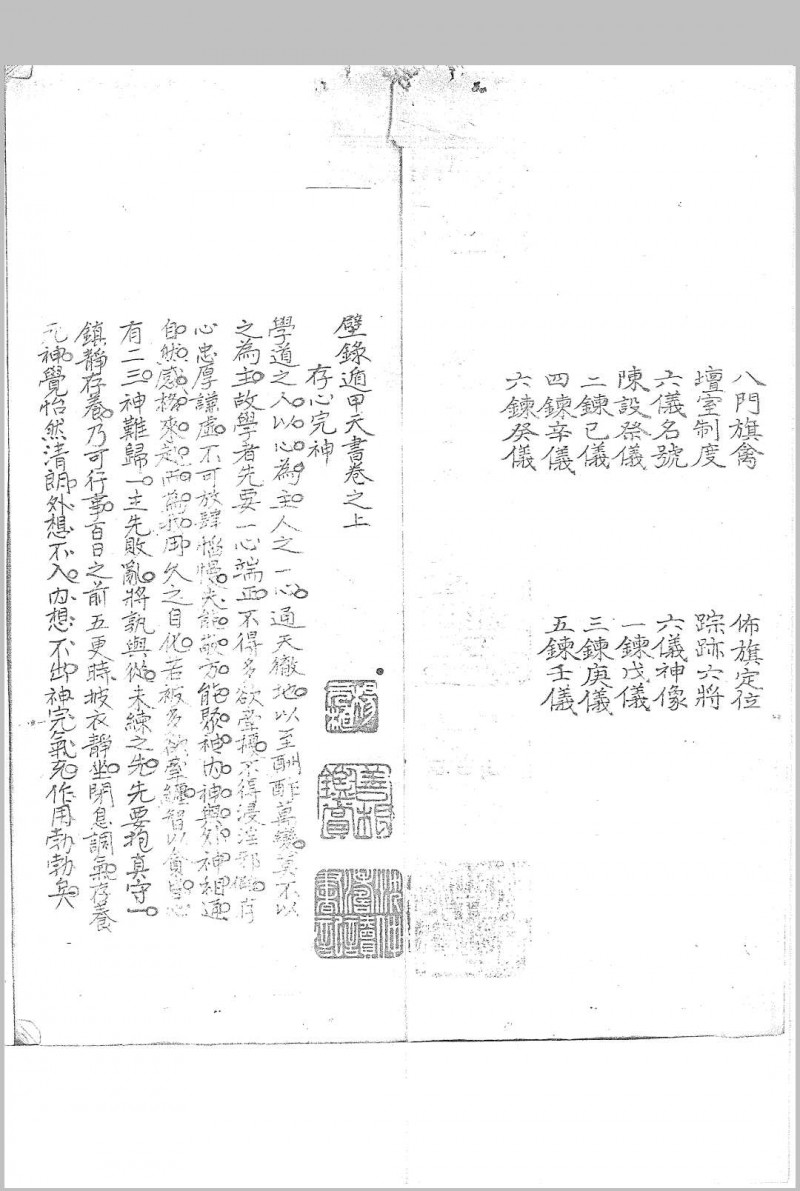 八門旗禽　佈旗定位
壇室制度　踪跡六將
六儀名號　六儀神像
陳設祭儀　一鍊戊儀
二鍊己儀　三鍊庚儀
四鍊辛儀　五鍊壬儀
六鍊癸儀
壁錄遁甲天書卷之上
存心完神
學道之人以心為主人之一心通天徹地以至酬酢萬變莫不以
之為主故學者先要一心端正不得多欲不得浸淫邪存
心忠厚謙虛不可放肆惰慢夫能敬方能聚神內神與外神相通
自然感格來為我用久之自化若被多欲牽纏智以貪
有二三神難歸一主先敗亂將孰與從未練之先先要抱真守一
鎮靜存養乃可行事百日之前五更時披衣靜坐閉息調氣存養
元神覺怡然清朗外想不入內想不出神完氣充作用勃勃矣